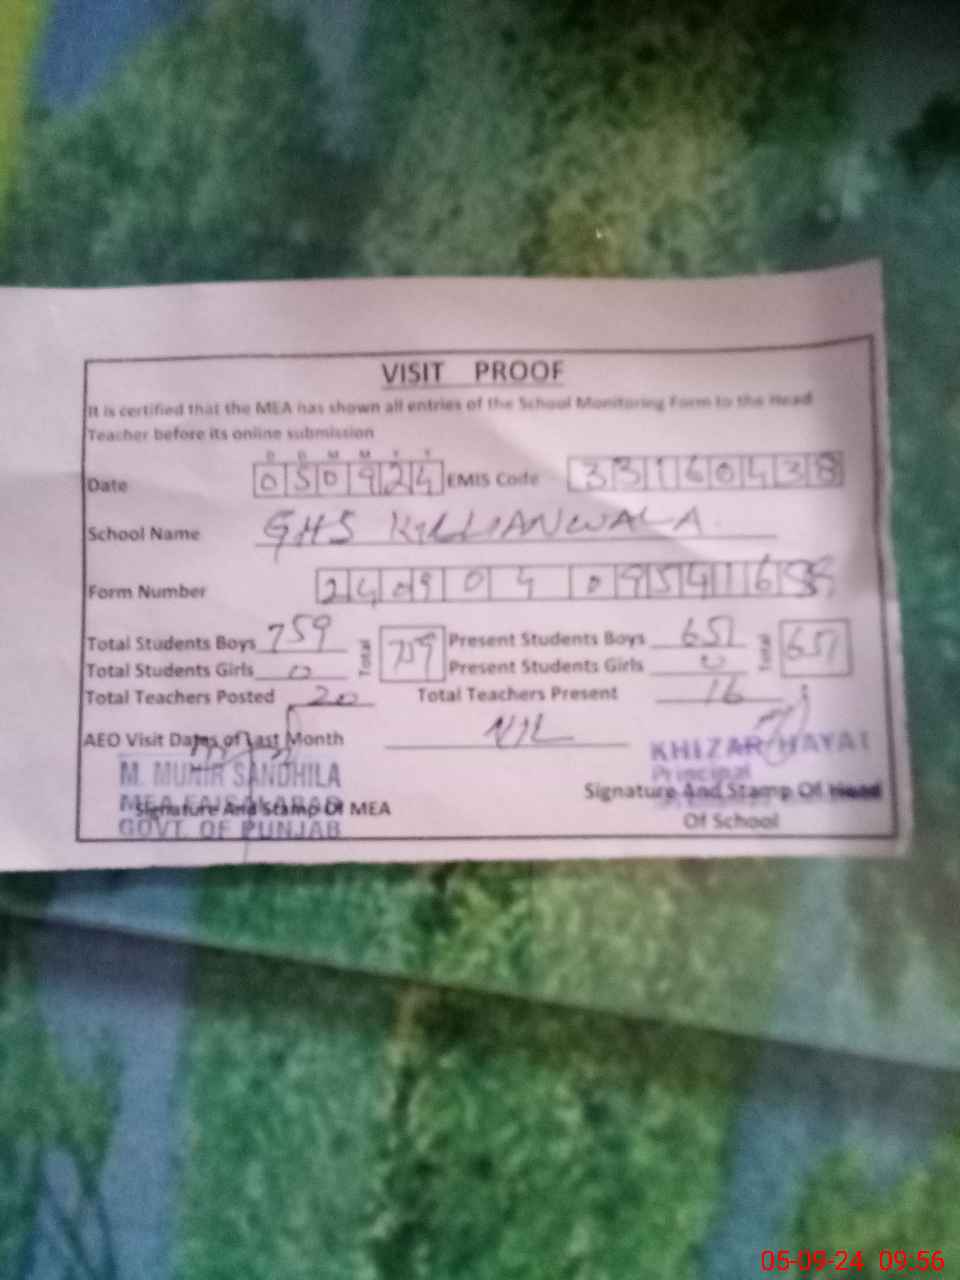 VISIT PROOF
It is certified that the MEA has shown all entries of the School Monitoring Form to the Head
Teacher before its online submission
D D M M Y Y
Date 050924 EMIS Code 33160438
School Name GHS KILLIANWALA
Form Number
Total Students Boys 759 Total 759 Present Students Boys 651 Total 651
Total Students Girls 0 Present Students Girls 0
Total Teachers Posted 20 Total Teachers Present 16
AEO Visit Dates of Last Month NIL
M. MUNIR SANDHILA
MEA FAISALABAD
Signature And Stamp Of MEA
GOVT. OF PUNJAB
KHIZAR HAYAT
Principal
Signature And Stamp Of Head
Of School
05-09-24 09:56